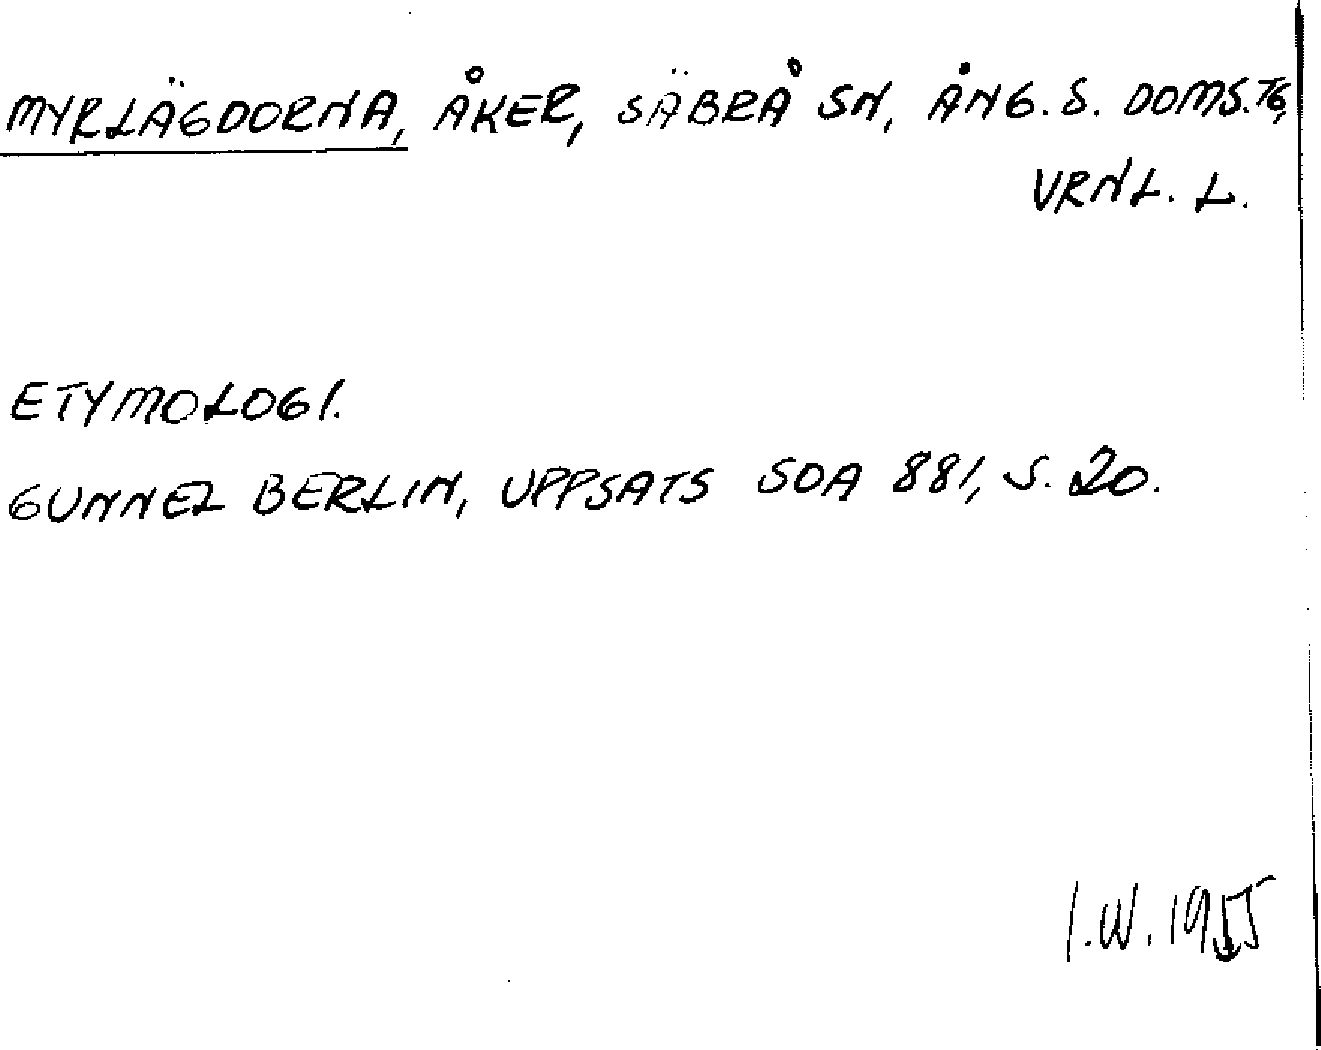 MYRLÄGDORNA, ÅKER, SÄBRÅ SN, ÅNG. S. DOMS. TG,
VRNL. L.
ETYMOLOGI.
GUNNEL BERLIN, UPPSATS SOA 881, S. 20.
I.W. 1955